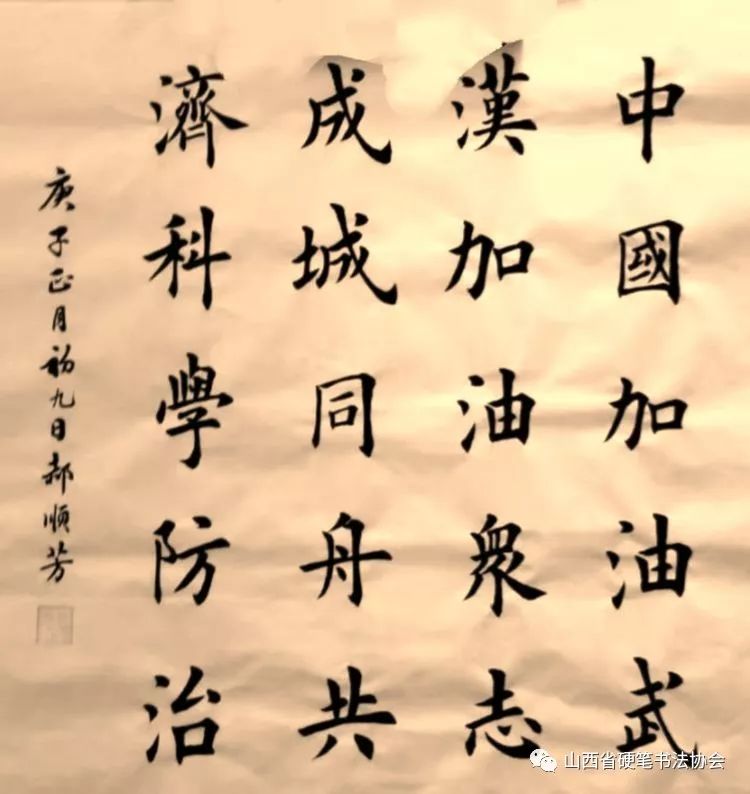 中國加油武
漢加油衆志
成城同舟共
濟科學防治
庚子正月初九日郝順芳
山西省硬笔书法协会